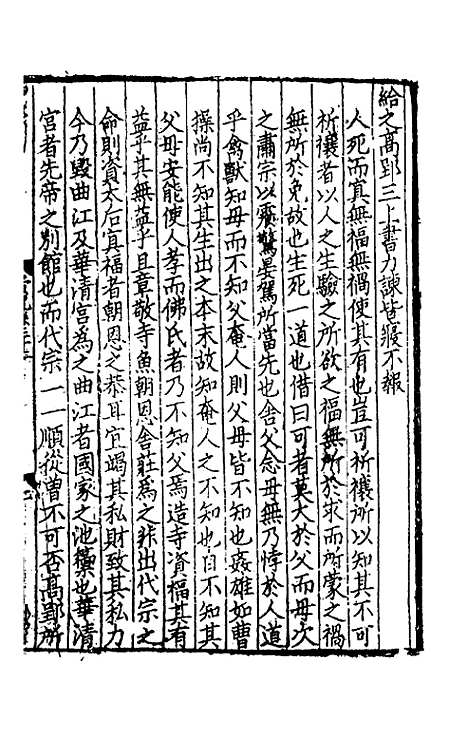 給之高郢三上書力諫皆寢不報
人死而寘無福無禍使其有也豈可祈禳所以知其不可
祈禳者以人之生驗之所欲之福無所於求而所蒙之禍
無所於免故也生死一道也借曰可者莫大於父而母次
之肅宗以憂驚晏駕所當先也舍父念母無乃悖於人道
乎禽獸知母而不知父奄人則父母皆不知也姦雄如曹
操尚不知其生出之本末故知奄人之不知也自不知其
父母安能使人孝而佛氏者乃不知父焉造寺資福其有
益乎其無益乎且章敬寺魚朝恩舍莊爲之非出代宗之
命則資太后㝠福者朝恩之恭耳宜竭其私財致其私力
今乃毀曲江及華清宮為之曲江者國家之池籞也華清
宮者先帝之別館也而代宗一一順從曾不可否高郢所